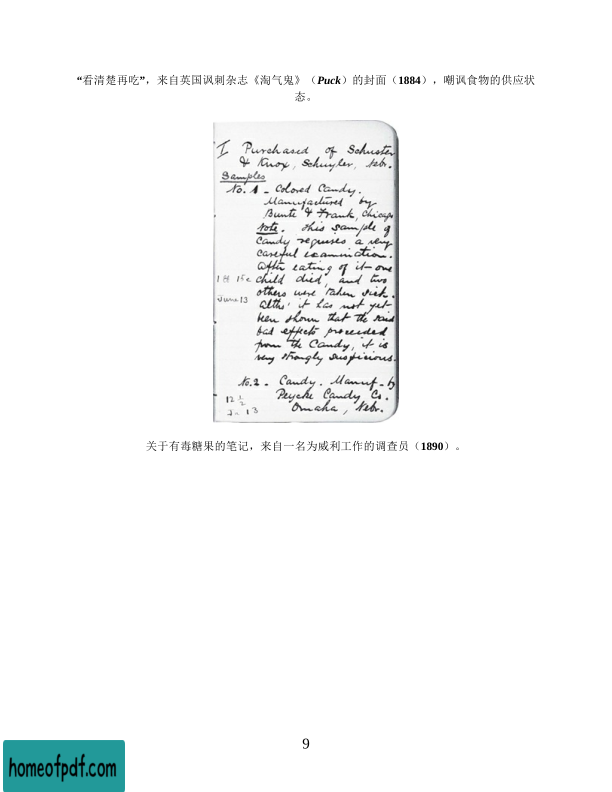 “看清楚再吃”，来自英国讽刺杂志《淘气鬼》（Puck）的封面（1884），嘲讽食物的供应状
态。
I Purchased of Schuster
& Knox, Schuyler, Nebr.
Samples
No. 1 - Colored Candy.
Manufactured by
Bunte & Frank, Chicago
Note. This sample of
Candy requires a very
careful examination.
After eating of it - one
18 15c child died, and two
June 13 others were taken sick.
Altho' it has not yet
been shown that the said
bad effects proceeded
from the Candy, it is
very strongly suspicious.
No. 2 - Candy. Manuf - by
12 1/2 Peycke Candy Co.
Ju 13 Omaha, Nebr.
关于有毒糖果的笔记，来自一名为威利工作的调查员（1890）。
9
homeofpdf.com